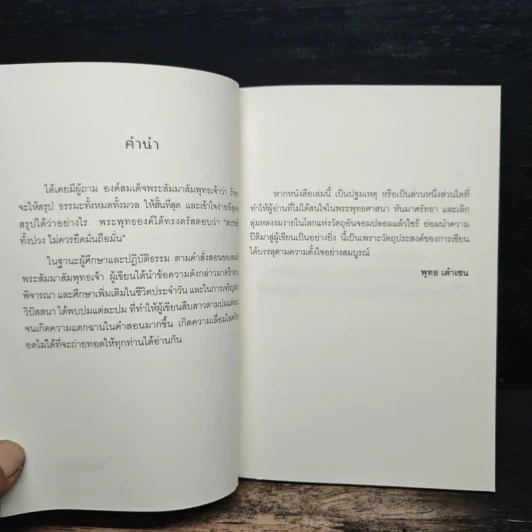 คำนำ
ได้เคยมีผู้ถาม องค์สมเด็จพระสัมมาสัมพุทธเจ้าว่า
จะให้สรุป ธรรมะทั้งหมดทั้งมวล ให้สั้นที่สุด และเข้าใจง่าย
สรุปได้ว่าอย่างไร พระพุทธองค์ได้ทรงตรัสตอบว่า
ทั้งปวง ไม่ควรยึดมั่นถือมั่น"
ในฐานะผู้ศึกษาและปฏิบัติธรรม ตามคำสั่งสอนของ
พระสัมมาสัมพุทธเจ้า ผู้เขียนได้นำข้อความดังกล่าวมา
พิจารณา และศึกษาเพิ่มเติมในชีวิตประจำวัน และในการเจริญ
วิปัสสนา ได้พบปมแต่ละปม ที่ทำให้ผู้เขียนสืบสาวตามปม
จนเกิดความแตกฉานในคำสอนมากขึ้น เกิดความเลื่อมใส
อดไม่ได้ที่จะถ่ายทอดให้ทุกท่านได้อ่านกัน
หากหนังสือเล่มนี้ เป็นปฐมเหตุ หรือเป็นส่วนหนึ่งส่วนใดที่
ทำให้ผู้อ่านที่ไม่ได้สนใจในพระพุทธศาสนา หันมาศรัทธา และเลิก
ลุ่มหลงมงายในโลกแห่งวัตถุอันจอมปลอมแล้วไซร้ ย่อมนำความ
ปีติมาสู่ผู้เขียนเป็นอย่างยิ่ง นี้เป็นเพราะวัตถุประสงค์ของการเขียน
ได้บรรลุตามความตั้งใจอย่างสมบูรณ์
พุทธ เต๋าเซน